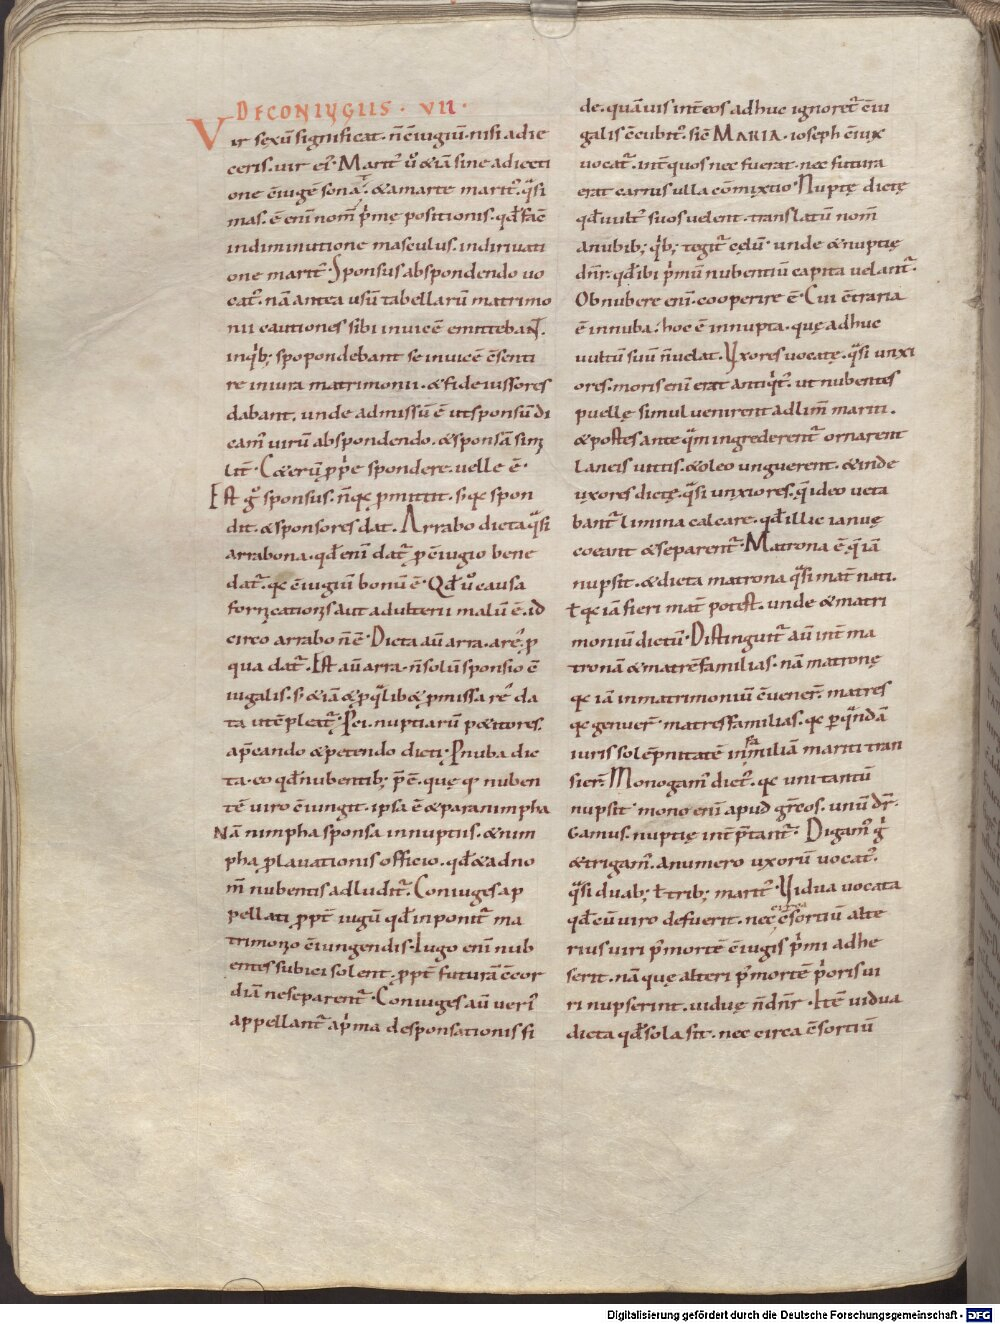 DE CONIVGIIS · VII ·
Vir sexū significat · n̄ c̄iugiū · nisi adie
ceris · vir eiꝰ · Maritꝰ ū̊ &iā sine adiecti
one c̄iugē sonat · & a marte maritꝰ · q̄si
mas · ē eni nom̄ p̄mę positionis · qđ fac̄
in diminutione masculus · in dirivati
one maritꝰ · Sponsus ab spondendo vo
catꝰ · nā antea usū tabellarū matrimo
nii cautiones sibi invicē emittebant ·
in qͥbꝫ spopondebant se invicē c̄senti
re in iura matrimonii · & fideiussores
dabant · unde admissū ē ut sponsū di
cam̄ virū ab spondendo · & sponsā simi
lit̄ · Cet̄erū p̱p̄e spondere · velle ē ·
Est g̊ sponsus · n̄ qꝫ p̱mittit · s; qꝫ spon
dit · & sponsores dat · Arrabo dicta q̄si
arrabona · qđ eni dat̄ p̱ c̄iugio bene
dat̄ · qꝫ c̄iugiū bonū ē · Qđ ū̊ causa
fornicationis aut adulterii malū ē · id
circo arrabo n̄ ē · Dicta aū arra · a re · p̱
qua dat̄ · Est aū arra · n̄ solū sponsio c̄
iugalis · s; &iā & p̱ q̄lib& p̱missa re · da
ta ut c̄pleat̄ · Pci · nuptiarū petitores ·
a p̄cando & petendo dicti · Pnuba dic
ta · eo qđ nubentibꝫ p̄ē · quę qꝫ nuben
tē viro c̄iungit · ipsa ē & paranimpha
Nā nimpha sponsa in nuptiis · & nim
pha p̱ lavationis officio · qđ & ad no
m̄ nubentis alludit̄ · Coniuges ap
pellati p̱pt̄ iugū qđ inponit̄ ma
trimonio c̄iungendis · Iugo eni nub
entes subici solent · p̱pt̄ futurā c̄cor
diā ne separent̄ · Coniuges aū veriꝰ
appellant̄ a p̄ma desponsationis fi
de · quāvis int̄ eos adhuc ignoret̄ c̄iu
galis c̄cubitꝰ · sic̄ MARIA · ioseph c̄iux
vocat̄ · int̄ quos nec fuerat · nec futura
erat carnis ulla cōmixtio · Nuptę dictę
qđ vultꝰ suos velent · translatū nom̄
a nubibꝫ · qͥbꝫ tegit̄ cęlū · unde & nuptię
dnr̄ · qđ ibi p̄mū nubentiū capita velant̄ ·
Obnubere eni · cooperire ē · Cui c̄traria
ē innuba · hoc ē innupta · quę adhuc
vultū suū n̄ velat · Vxores vocatę · q̄si unxi
ores · moris eni erat antiqͥtꝰ · ut nubentes
puellę simul venirent ad lim̄ mariti ·
& postes ante q̄m ingrederent̄ ornarent
laneis vittis · & oleo unguerent · & inde
uxores dictę · q̄si unxiores · q̄ ideo veta
bant̄ limina calcare · qđ illic ianuę
coeant & separent̄ · Matrona ē · q̄ iā
nupsit · & dicta matrona q̄si mat̄ nati ·
ł qꝫ iā fieri mat̄ potest · unde & matri
moniū dictū · Distinguit̄ aū int̄ ma
tronā & matrē familias · nā matronę
qꝫ iā in matrimoniū c̄vener̄ · matres
qꝫ genuer̄ · matres familias · qꝫ p̱ q̄ndā
iuris solēpnitatē in familiā mariti tran
sier̄ · Monogamꝰ dicit̄ · qꝫ uni tantū
nupsit · mono eni apud grecos · unū dr̄ ·
Gamus · nuptię int̄p̄tant̄ · Digamꝰ ḡ
& trigamꝰ · a numero uxorū vocatꝰ ·
q̄si duabꝫ ł tribꝫ maritꝰ · Vidua vocata
qđ cū viro de fuerit · nec circa c̄sortiū alte
rius viri p̱ mortē c̄iugis p̄mi adhe
serit · nā quę alteri p̱ mortē p̄oris vi
ri nupserint · viduę n̄ dnr̄ · Itē vidua
dicta qđ sola sit · nec circa c̄sortiū
Digitalisierung gefördert durch die Deutsche Forschungsgemeinschaft - DFG